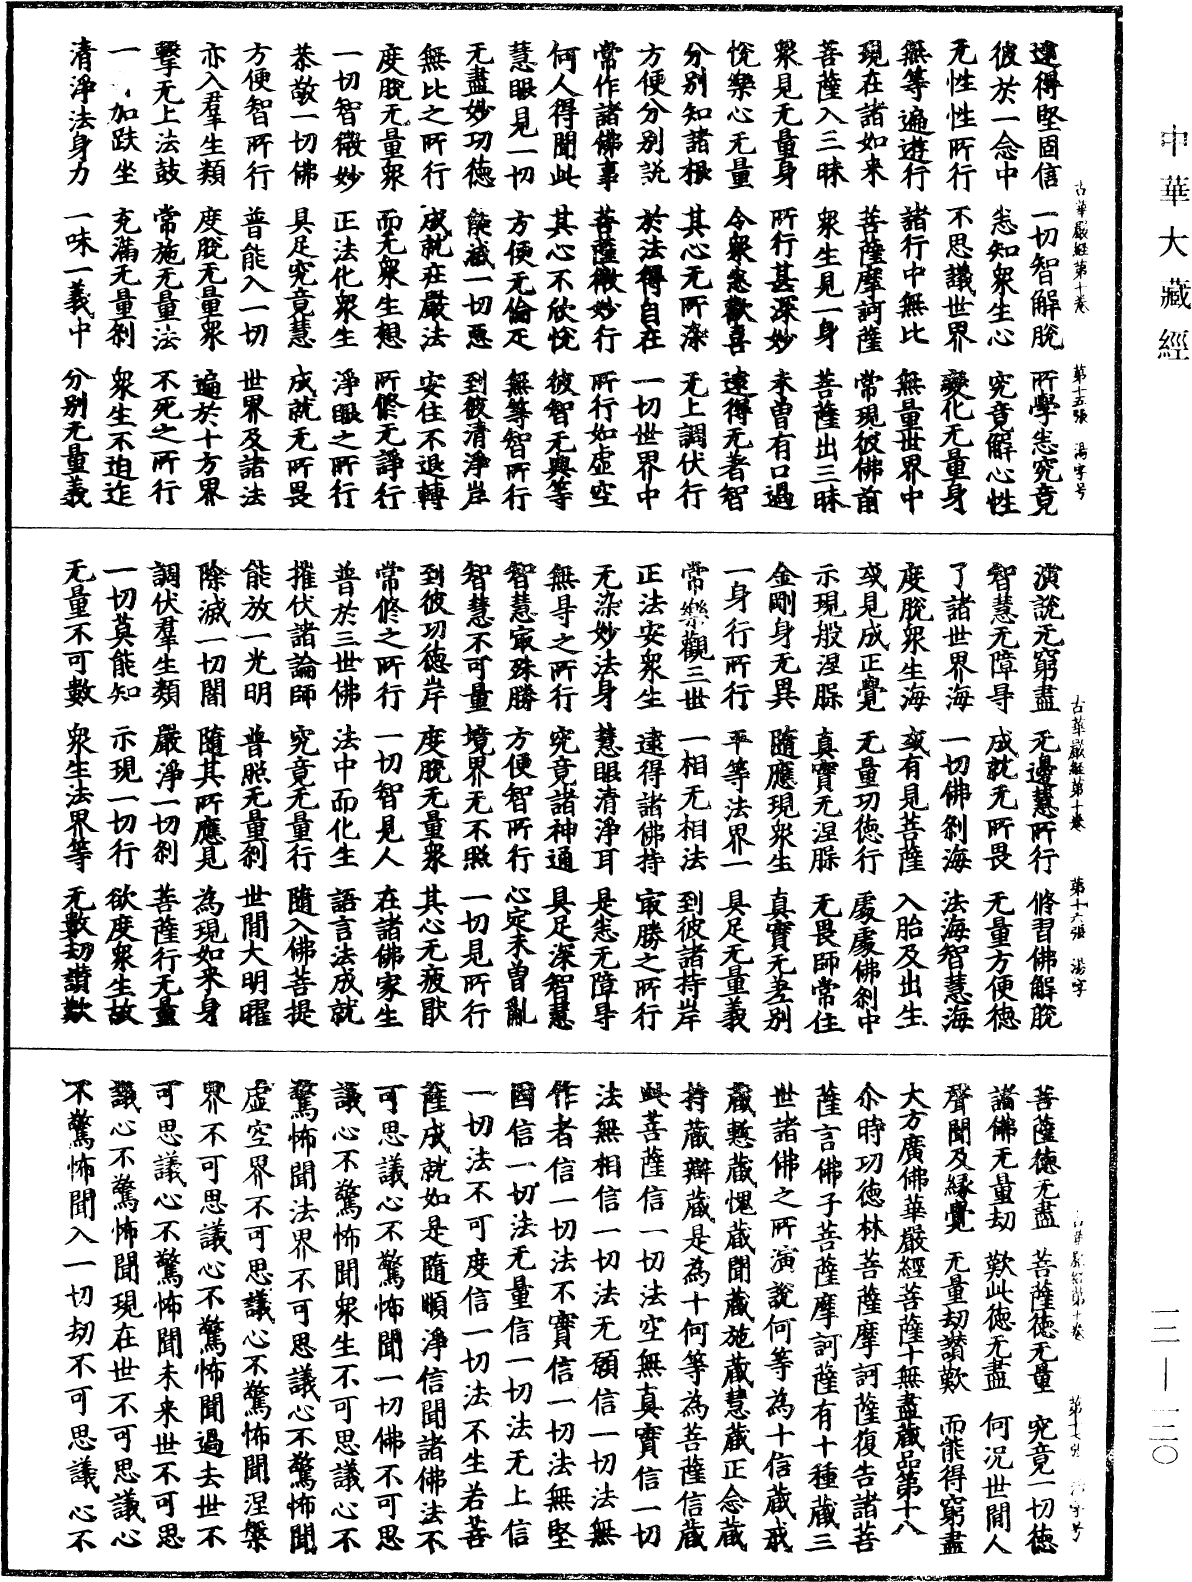 中華大藏經
速得堅固信 一切智解脫 所學悉究竟
彼於一念中 悉知衆生心 究竟解心性
无性性所行 不思議世界 變化无量身
無等遍遊行 諸行中無比 無量世界中
現在諸如来 菩薩摩訶薩 常現彼佛前
菩薩入三昧 衆生見一身 菩薩出三昧
衆見无量身 所行甚深妙 未曾有口過
悅樂心无量 令衆悉歡喜 逮得无著智
分別知諸根 其心无所染 无上調伏行
方便分別說 於法得自在 一切世界中
常作諸佛事 菩薩微妙行 所行如虛空
何人得聞此 其心不欣悅 彼智无與等
慧眼見一切 方便无倫疋 無等智所行
无盡妙功德 能滅一切惡 到彼清淨岸
無比之所行 成就莊嚴法 安住不退轉
度脫无量衆 而无衆生想 所修无諍行
一切智微妙 正法化衆生 淨眼之所行
恭敬一切佛 具足究竟慧 成就无所畏
方便智所行 普能入一切 世界及諸法
亦入羣生類 度脫无量衆 遍於十方界
擊无上法鼓 常施无量法 不死之所行
一 加趺坐 充滿无量刹 衆生不迫迮
清淨法身力 一味一義中 分別无量義
古華嚴經第十卷 第十五張 湯字号
演說无窮盡 无邊慧所行 修習佛解脫
智慧无障㝵 成就无所畏 无量方便德
了諸世界海 一切佛刹海 法海智慧海
度脫衆生海 或有見菩薩 入胎及出生
或見成正覺 无量功德行 處處佛刹中
示現般涅槃 真實无涅槃 无畏師常住
金剛身无異 隨應現衆生 真實无差別
一身行所行 平等法界一 具足无量義
常樂觀三世 一相无相法 到彼諸持岸
正法安衆生 逮得諸佛持 㝡勝之所行
无染妙法身 慧眼清淨耳 是悉无障㝵
無㝵之所行 究竟諸神通 具足深智慧
智慧㝡殊勝 方便智所行 心定未曾亂
智慧不可量 境界无不照 一切見所行
到彼功德岸 度脫无量衆 其心无疲猒
常修之所行 一切智見人 在諸佛家生
普於三世佛 法中而化生 語言法成就
摧伏諸論師 究竟无量行 隨入佛菩提
能放一光明 普照无量刹 世間大明曜
除滅一切闇 隨其所應見 為現如来身
調伏羣生類 嚴淨一切刹 菩薩行无量
一切莫能知 示現一切行 欲度衆生故
无量不可數 衆生法界等 无數劫讚歎
古華嚴經第十卷 第十六張 湯字
菩薩德无盡 菩薩德无量 究竟一切德
諸佛无量劫 歎此德无盡 何況世間人
聲聞及緣覺 无量劫讚歎 而能得窮盡
大方廣佛華嚴經菩薩十無盡藏品第十八
尒時功德林菩薩摩訶薩復告諸菩
薩言佛子菩薩摩訶薩有十種藏三
世諸佛之所演說何等為十信藏戒
藏慙藏愧藏聞藏施藏慧藏正念藏
持藏辯藏是為十何等為菩薩信藏
此菩薩信一切法空無真實信一切
法無相信一切法无願信一切法無
作者信一切法不實信一切法無堅
固信一切法无量信一切法无上信
一切法不可度信一切法不生若菩
薩成就如是隨順淨信聞諸佛法不
可思議心不驚怖聞一切佛不可思
議心不驚怖聞衆生不可思議心不
驚怖聞法界不可思議心不驚怖聞
虛空界不可思議心不驚怖聞涅槃
界不可思議心不驚怖聞過去世不
可思議心不驚怖聞未来世不可思
議心不驚怖聞現在世不可思議心
不驚怖聞入一切劫不可思議心不
古華嚴經第十卷 第十七張
一二—一二〇